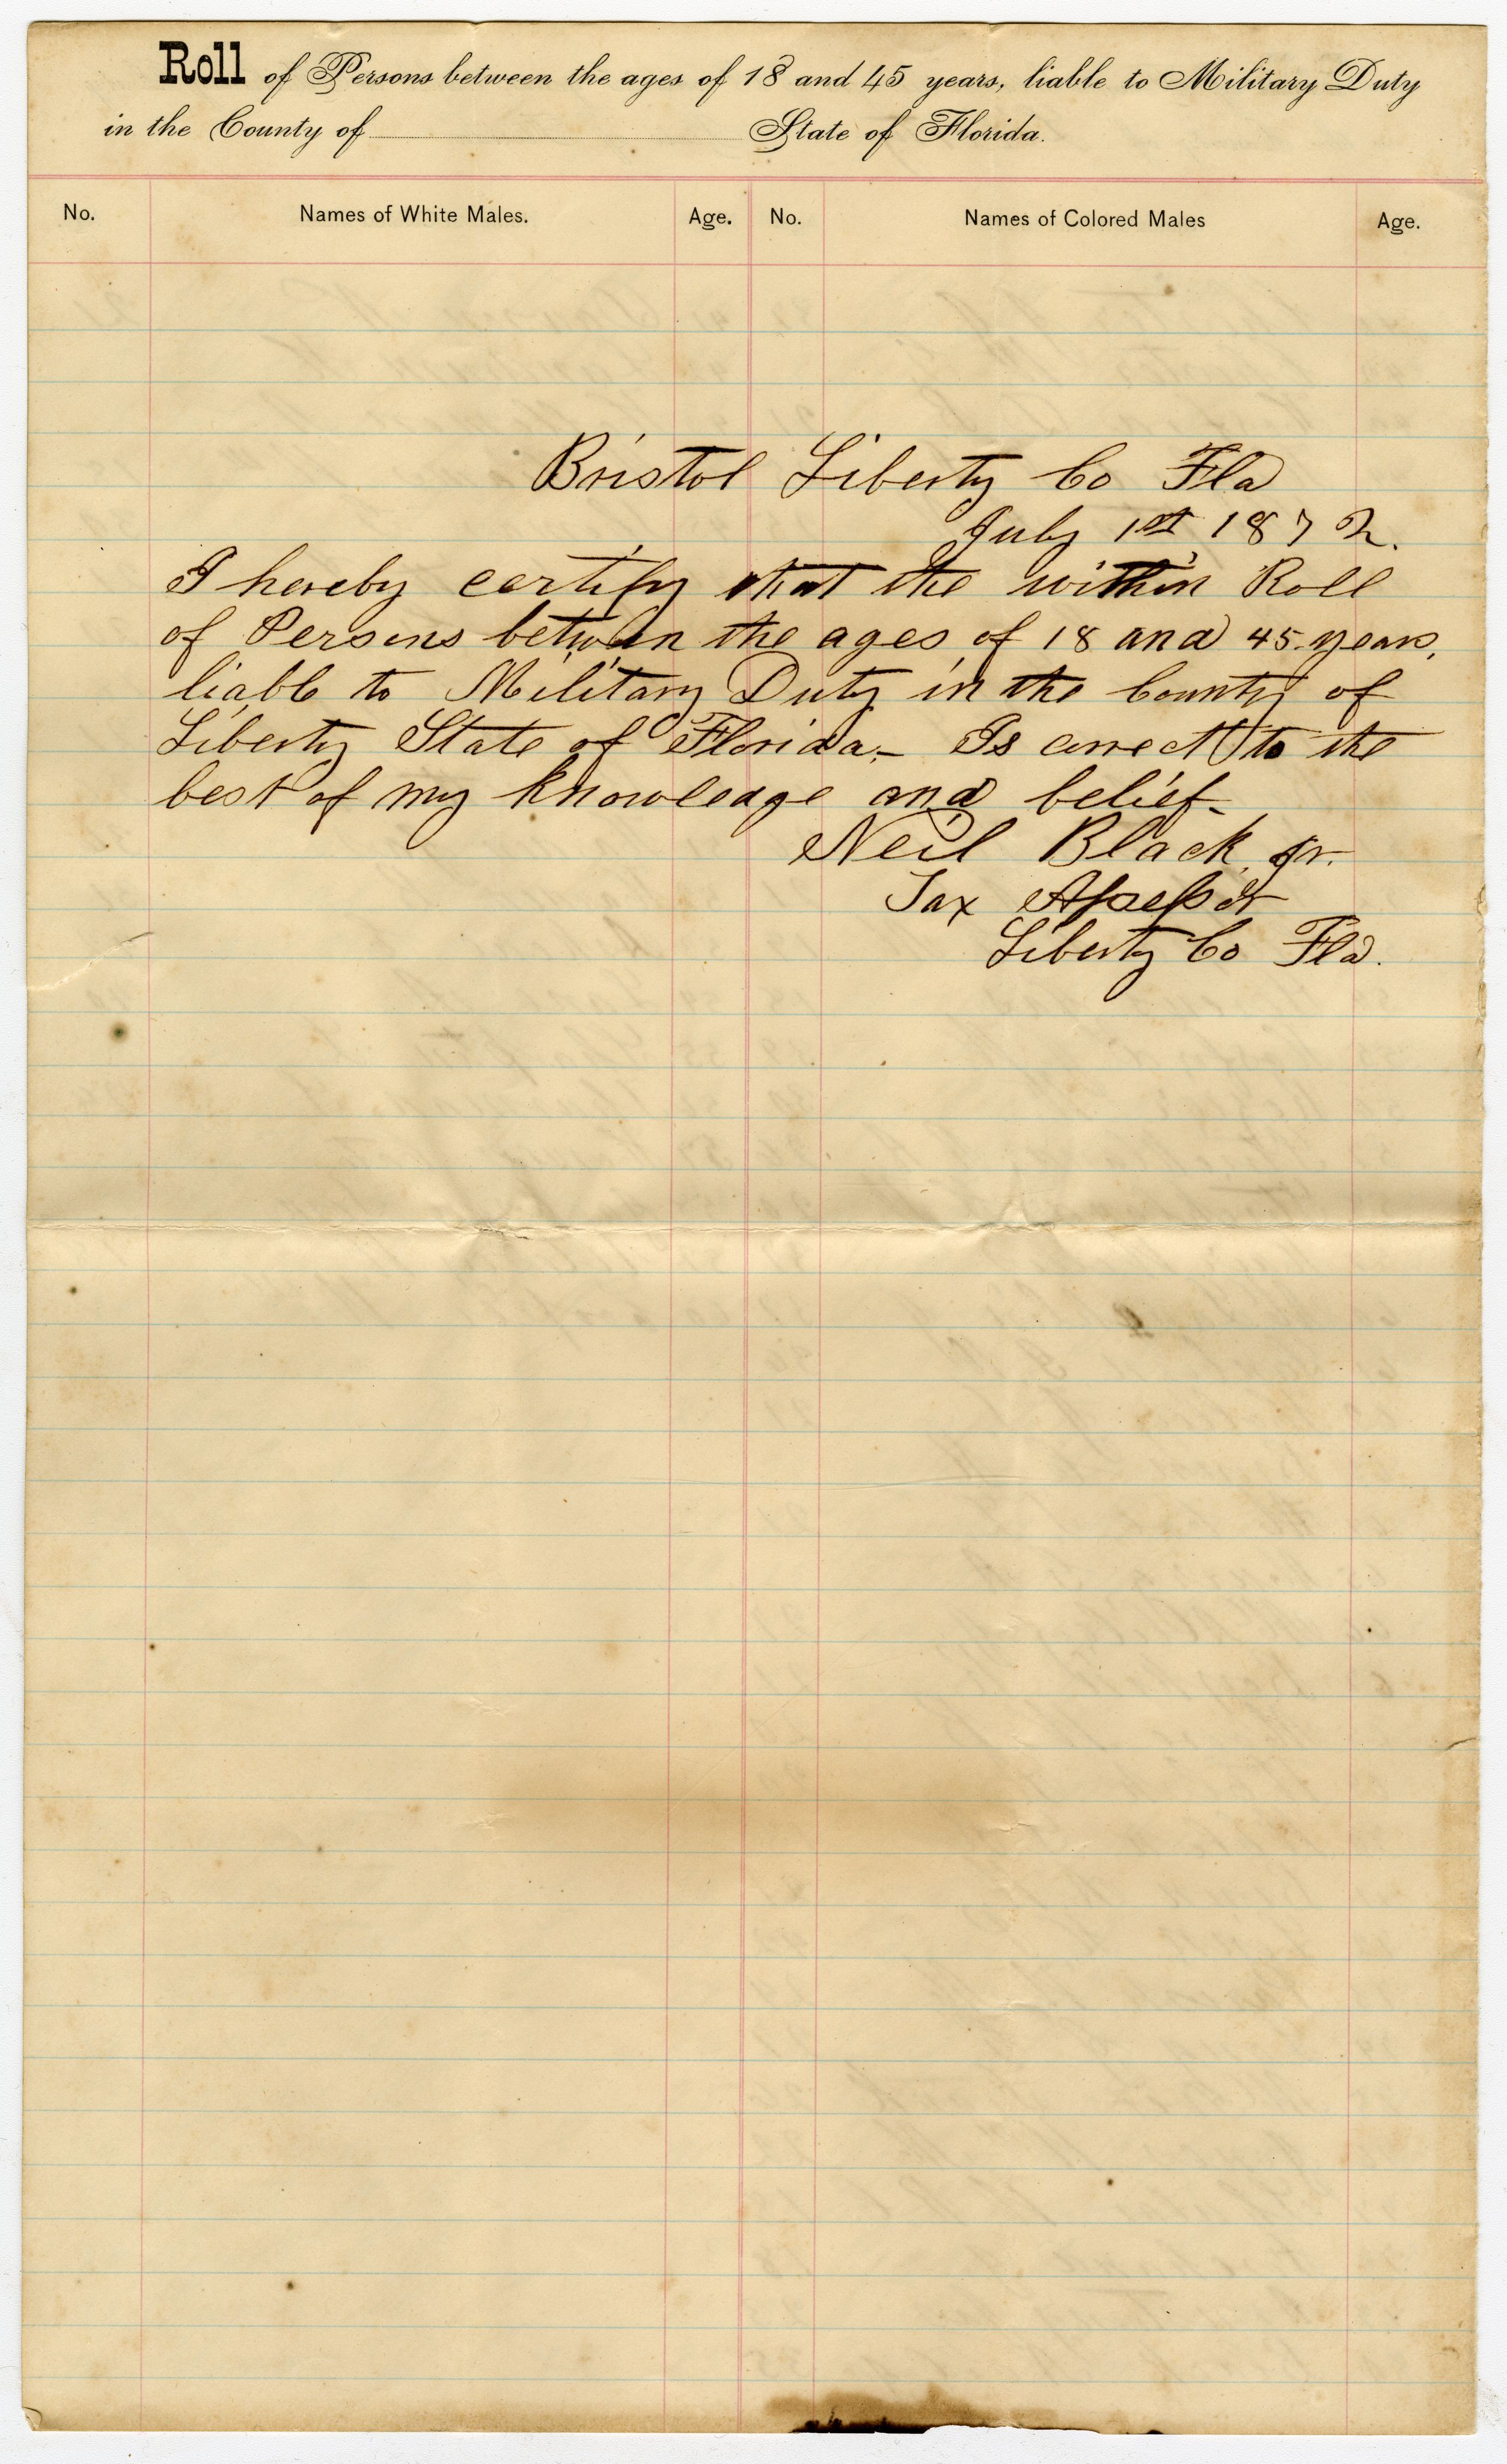 Roll of Persons between the ages of 18 and 45 years, liable to Military Duty
in the County of State of Florida.
No. Names of White Males. Age. No. Names of Colored Males Age.
Bristol Liberty Co Fla
July 1st 1872.
I hereby certify that the within Roll
of Persons between the ages of 18 and 45 years,
liable to Military Duty in the County of
Liberty State of Florida,- Is correct to the
best of my knowledge and belief-
Neil Black, Jr.
Tax Assessor
Liberty Co Fla.